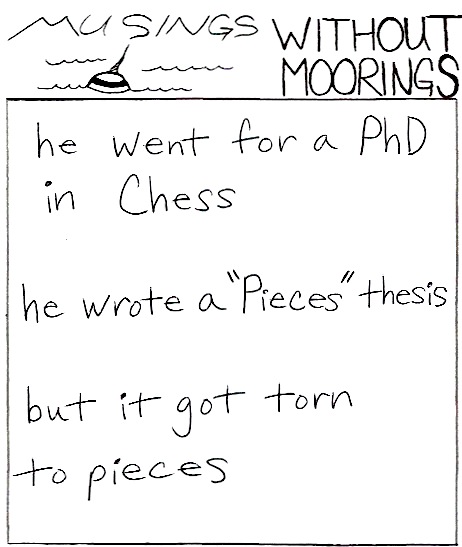 MUSINGS WITHOUT
MOORINGS
he went for a PhD
in Chess
he wrote a "Pieces" thesis
but it got torn
to pieces